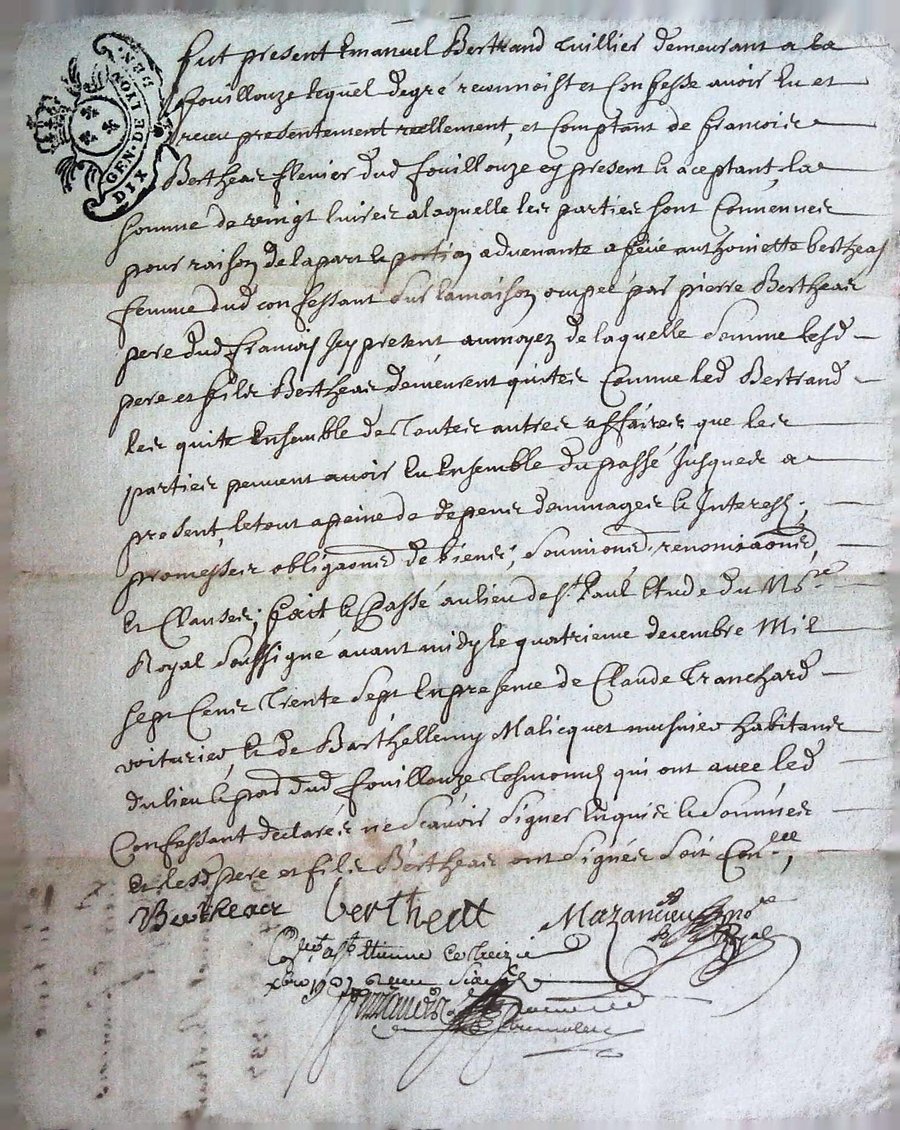 GEN. DE LYON
DIX DEN.
fut present Emanuel Bertrand tuillier demeurant a la
fouillouze lequel de gré reconnoist et Confesse avoir Eu et
receu presentement reellement, et Comptant de francois
Bertheas dud fouillouze ey present & aceptant, la
somme de vingt livres a laquelle les parties sont Convennes
pour raison de la part & portion advenante a feüe anthoinette bertheas
femme dud confessant sur la maison ocupeé par pierre Bertheas
pere dud francois Jcy present au moyen de laquelle somme lesd
pere et fils Bertheas demeurent quites Comme led Bertrand
les quite Ensemble de toutes autres affaires que les
parties peuvent avoir Eu Ensemble du passé Jusques a
present, le tout a peine de depens dommages & Interests,
promesses obligaons de biens, soumions, renonciaons,
et Clauses; fait & Passé au lieu de st. Paul Etude du Nore
Royal soussigné avant midy le quatrieme decembre Mil
sept Cens trente sept En presence de Claude tranchard
voiturier, & de Barthellemy Malicquet musnier habitans
du lieu & dud fouillouze tesmoins qui ont avec led
Confessant declarés ne scavoir signer Enquis & sommés
Et lesd pere et fils Bertheas ont signés soit Conlle,
Bertheas bertheat Mazancieu nore
Royal